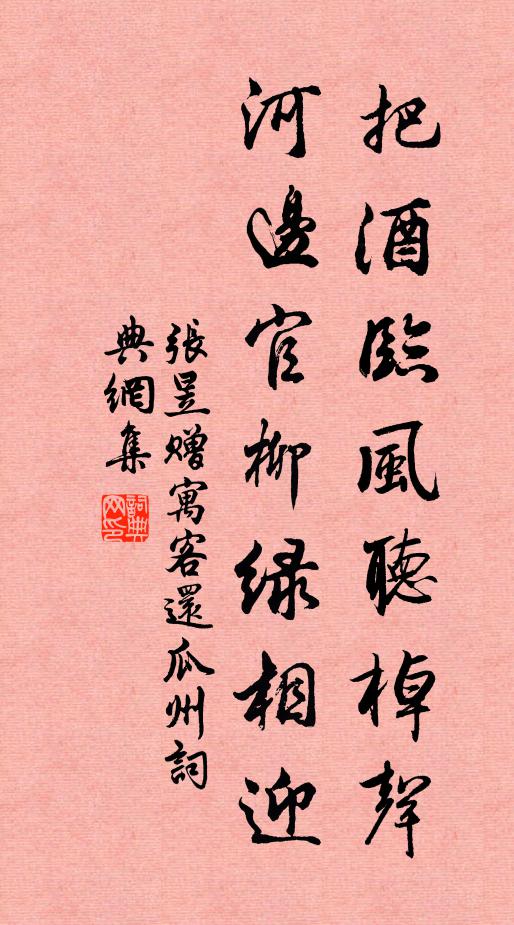 把酒臨風聽棹聲
河邊官柳綠相迎
張昱贈寓客還瓜州詞
典網集
詞典网印